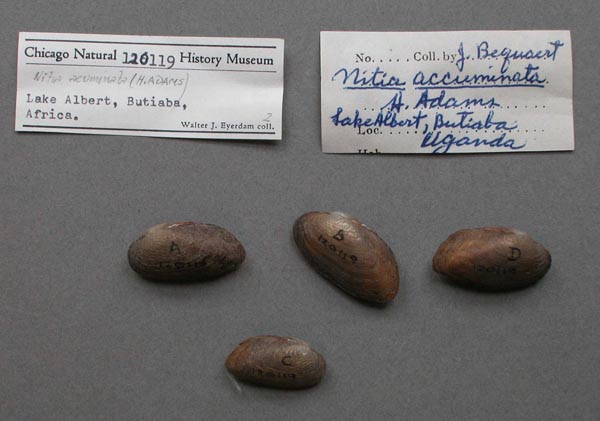 Chicago Natural 120119 History Museum
Nitia acuminata (H. ADAMS)
Lake Albert, Butiaba,
Africa.
2
Walter J. Eyerdam coll.
No. .... Coll. by J. Bequaert
Nitia accuminata
H. Adams
Loc. Lake Albert, Butiaba
Uganda
Hab
A
120119
B
120119
D
120119
C
120119